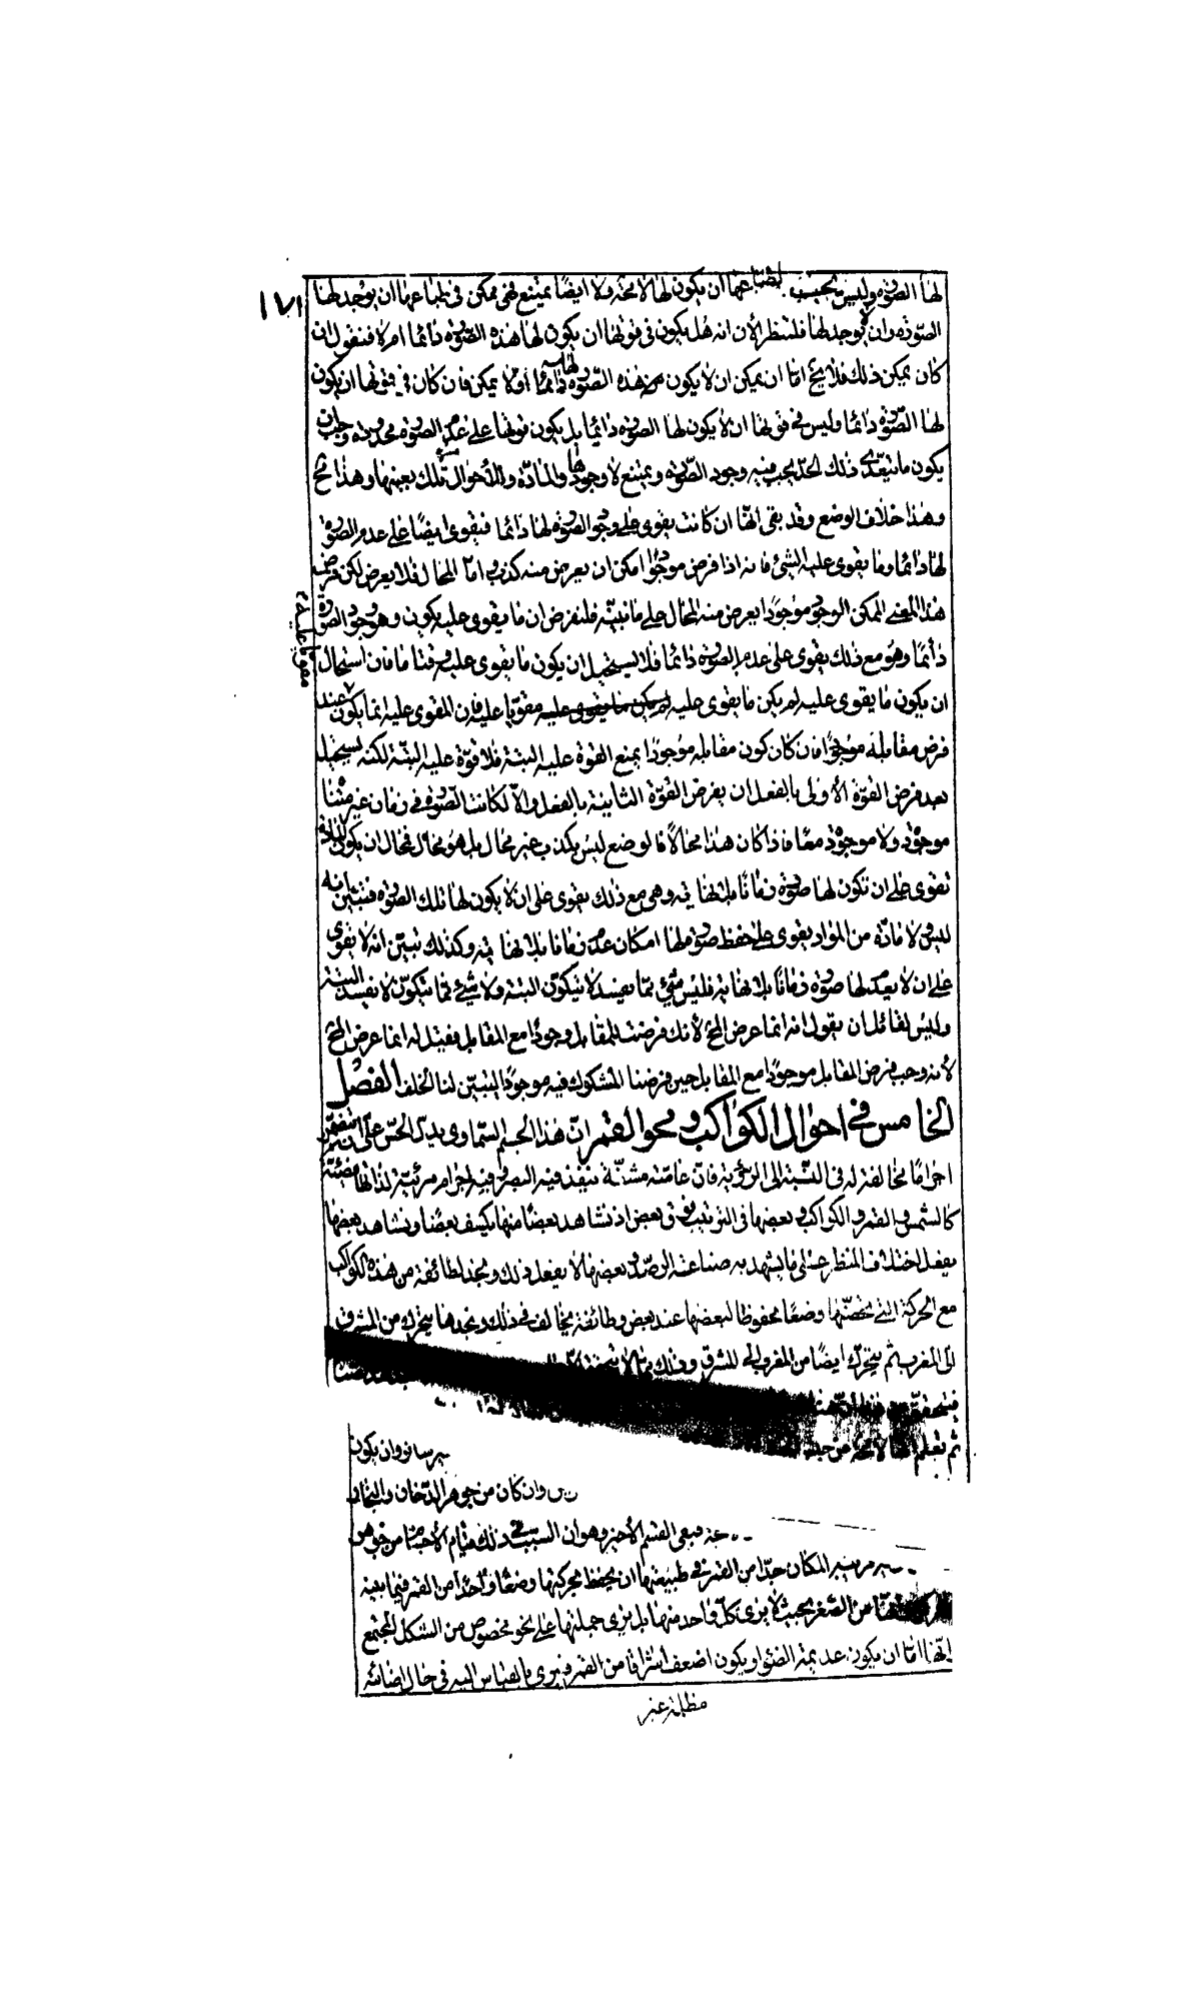 ١٧١
لها الصورة وليس بحسب طباعها ان يكون لها لا محة ولا ايضا يمتنع فهى ممكن فى طباعها ان يوجد لها
الصورة وان لا يوجد لها فلننظر الان انه هل يكون فى قوتها ان يكون لها هذه الصورة دائما ام لا فنقول ان
كان يمكن ذلك فلا يخ اما ان يمكن ان لا يكون هذه الصورة لها دائما او لا يمكن فان كان فى قوتها ان يكون
لها الصورة دائما وليس فى قوتها ان لا يكون لها الصورة دائما بل يكون قوتها على عدم الصورة محدودة وجب ان
يكون ما يتعدى ذلك الحد يجب فيه وجود الصورة ويمتنع لا وجودها والمادة والاحوال تلك بعينها وهذا مح
وهذا خلاف الوضع وقد بقى انها ان كانت يقوى على وجود الصورة لها دائما فيقوى ايضا على عدم الصورة
لها دائما وما يقوى عليه الشئ فانه اذا فرض موجودا امكن ان يعرض منه كذب اما المحال فلا يعرض لكن فرض
هذا المعنى الممكن الوجود موجودا يعرض منه المحال على ما نبينه فلنفرض ان ما يقوى عليه يكون وهو وجود الصورة
دائما وهو مع ذلك يقوى على عدم الصورة دائما فلا يستحيل ان يكون ما يقوى عليه وقتا ما فان استحال
ان يكون ما يقوى عليه لم يكن ما يقوى عليه مقويا عليه فان المقوى عليه انما يكون عند
فرض مقابله موجودا فان كان كون مقابله موجودا يمنع القوة عليه البتة فلا قوة عليه البتة لكنه يستحيل
بعد فرض القوة الاولى بالفعل ان يفرض القوة الثانية بالفعل والا لكانت الصورة فى زمان غير متناه
موجودة ولا موجودة معا فاذا كان هذا محالا فالوضع ليس بكذب غير محال بل هو محال فمحال ان يكون المادة
تقوى على ان تكون لها صورة زمانا بلا نهاية وهى مع ذلك يقوى على ان لا يكون لها تلك الصورة فتبين بانه
ليس ولا مادة من المواد يقوى على حفظ صورة لها امكان عدم زمانا بلا نهاية وكذلك نبين انه لا يقوى
على ان لا يعد لها صورة زمانا بلا نهاية فليس شئ مما يفسد لا يتكون البتة ولا شئ مما يتكون لا يفسد البتة
وليس لقائل ان يقول انه انما عرض المح لانك فرضت للمقابل وجودا مع المقابل فيقال له انما عرض المح
لانه وجب فرض المقابل موجودا مع المقابل حين فرضنا المشكوك فيه موجودا ليتبين لنا الخلف الفصل
الخامس فى احوال الكواكب ومحو القمر ان هذا الجسم السماوى يدرك الحس على انه يتضمن
اجراما مخالفة له فى النسبة الى الرؤية فان عامته مشفة ينفذ فيه البصر وفيه اجرام مرئية لذاتها مضيئة
كالشمس والقمر والكواكب بعضها فى الترتيب فوق بعض اذ نشاهد بعضا منها يكسف بعضا ونشاهد بعضها
يفعل اختلاف المنظر على ما يشهد به صناعة الرصد وبعضها لا يفعل ذلك ونجد لطائفة من هذه الكواكب
مع الحركة التى تخصها وضعا محفوظا لبعضها عند بعض وطائفة يخالف فى ذلك ونجدها يتحرك من المشرق
الى المغرب ثم يتحرك ايضا من المغرب الى المشرق وذلك مما لا
ثم تعلم
وان يكون
وان كان من جوهر الدخان والبخار
فبقى القسم الاخير وهو ان السبب فى ذلك قيام الاجسام من جوهر
المكان جدا من القمر فى طبيعتها ان يحفظ بحركتها وضعا واحدا من القمر فيما بينه
من الصغر بحيث لا يرى كل واحد منها بل يرى جملتها على نحو مخصوص من الشكل المجتمع
انها اما ان يكون عديمة الضوء او يكون اضعف اشراقا من القمر فيرى بالقياس اليه فى حال اضائته
مظلمة غير